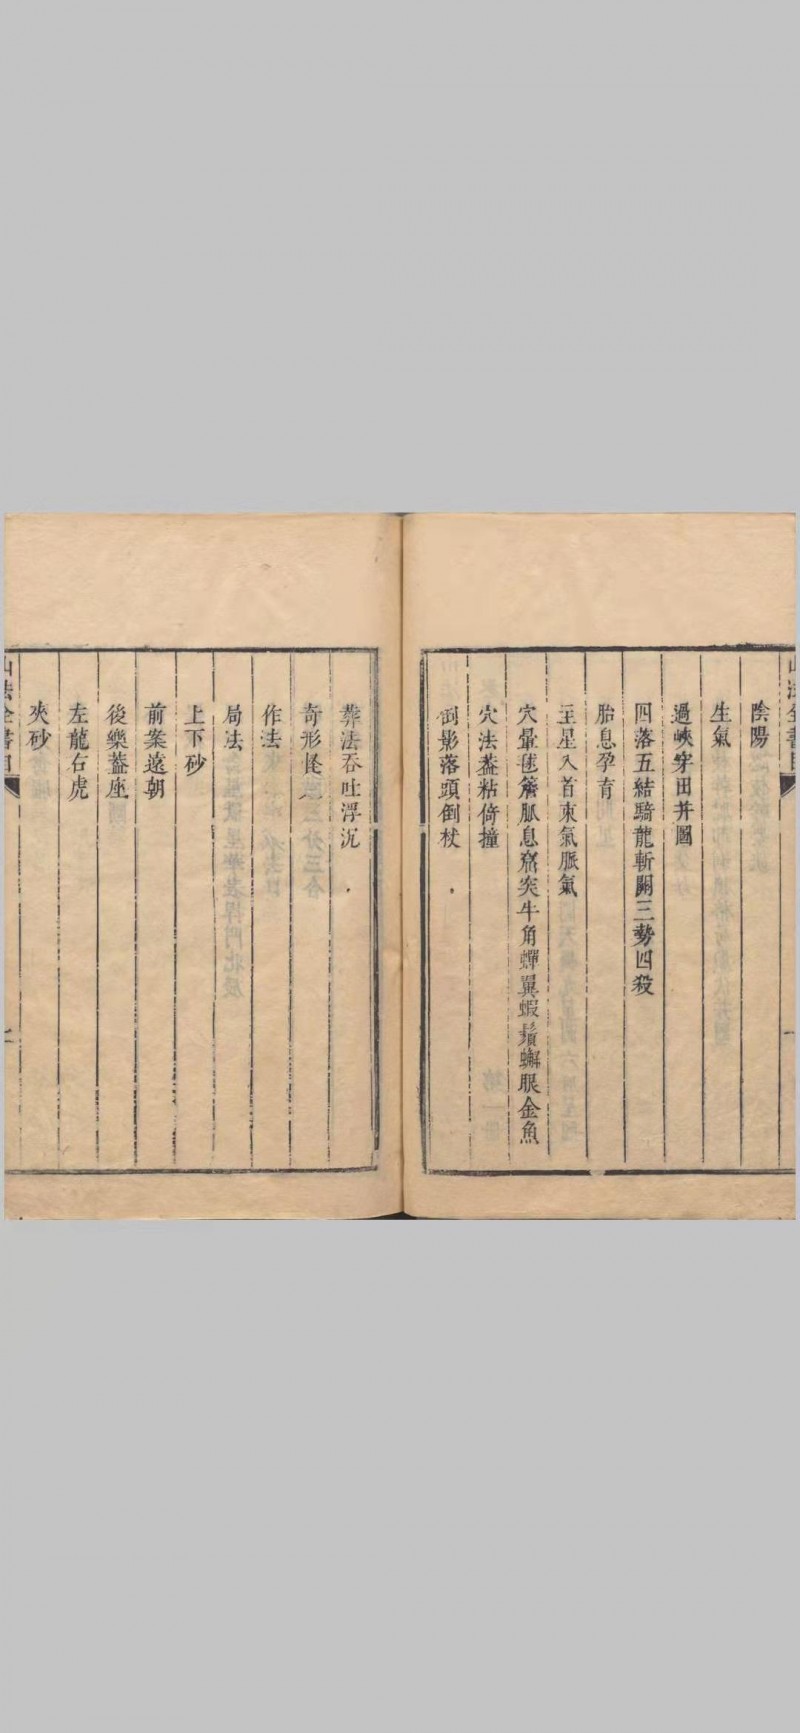 陰陽
生氣
過峽穿田并圖
四落五結騎龍斬關三勢四殺
胎息孕育
主星入首束氣脈氣
穴暈毬簷脈息窩突牛角蟬翼蝦鬚蠏眼金魚
穴法葢粘倚撞
倒影落頭倒杖
葬法吞吐浮沉
奇形怪穴
作法
局法
上下砂
前案遠朝
後樂葢座
左龍右虎
夾砂
山法全書目